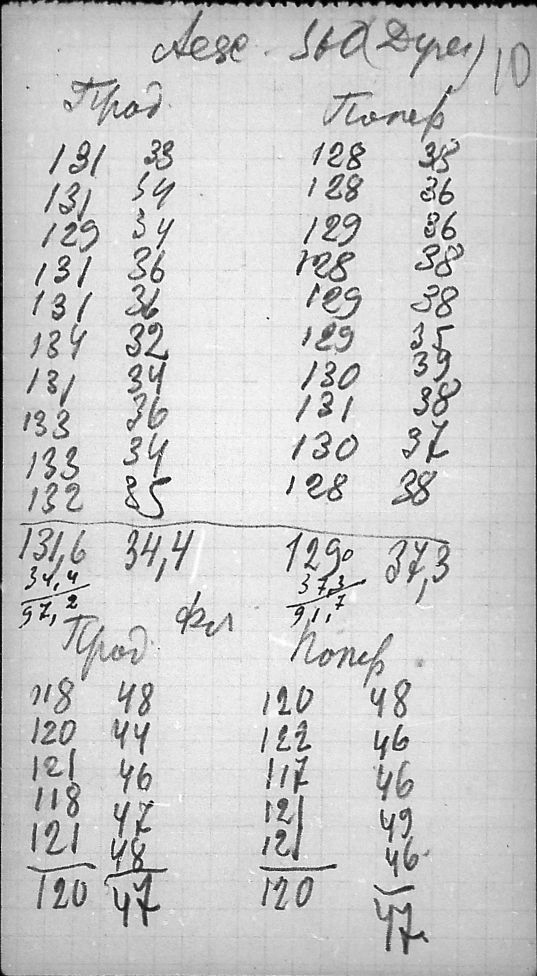 10
Прод. Попер
131 33 128 38
131 34 128 36
129 34 129 36
131 36 128 38
131 36 129 38
134 32 129 35
131 34 130 39
133 36 131 38
133 34 130 37
132 35 128 38
131,6 34,4 129,0 37,3
34,4 37,3
97,2 91,7
Фил
Прод. Попер.
118 48 120 48
120 44 122 46
121 46 117 46
118 47 121 49
121 48 121 46
120 47 120 47